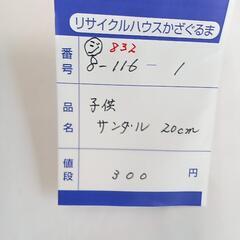 リサイクルハウスかざぐるま
番号 ジ 832
8-116-1
品名 子供
サンダル 20cm
値段 300 円